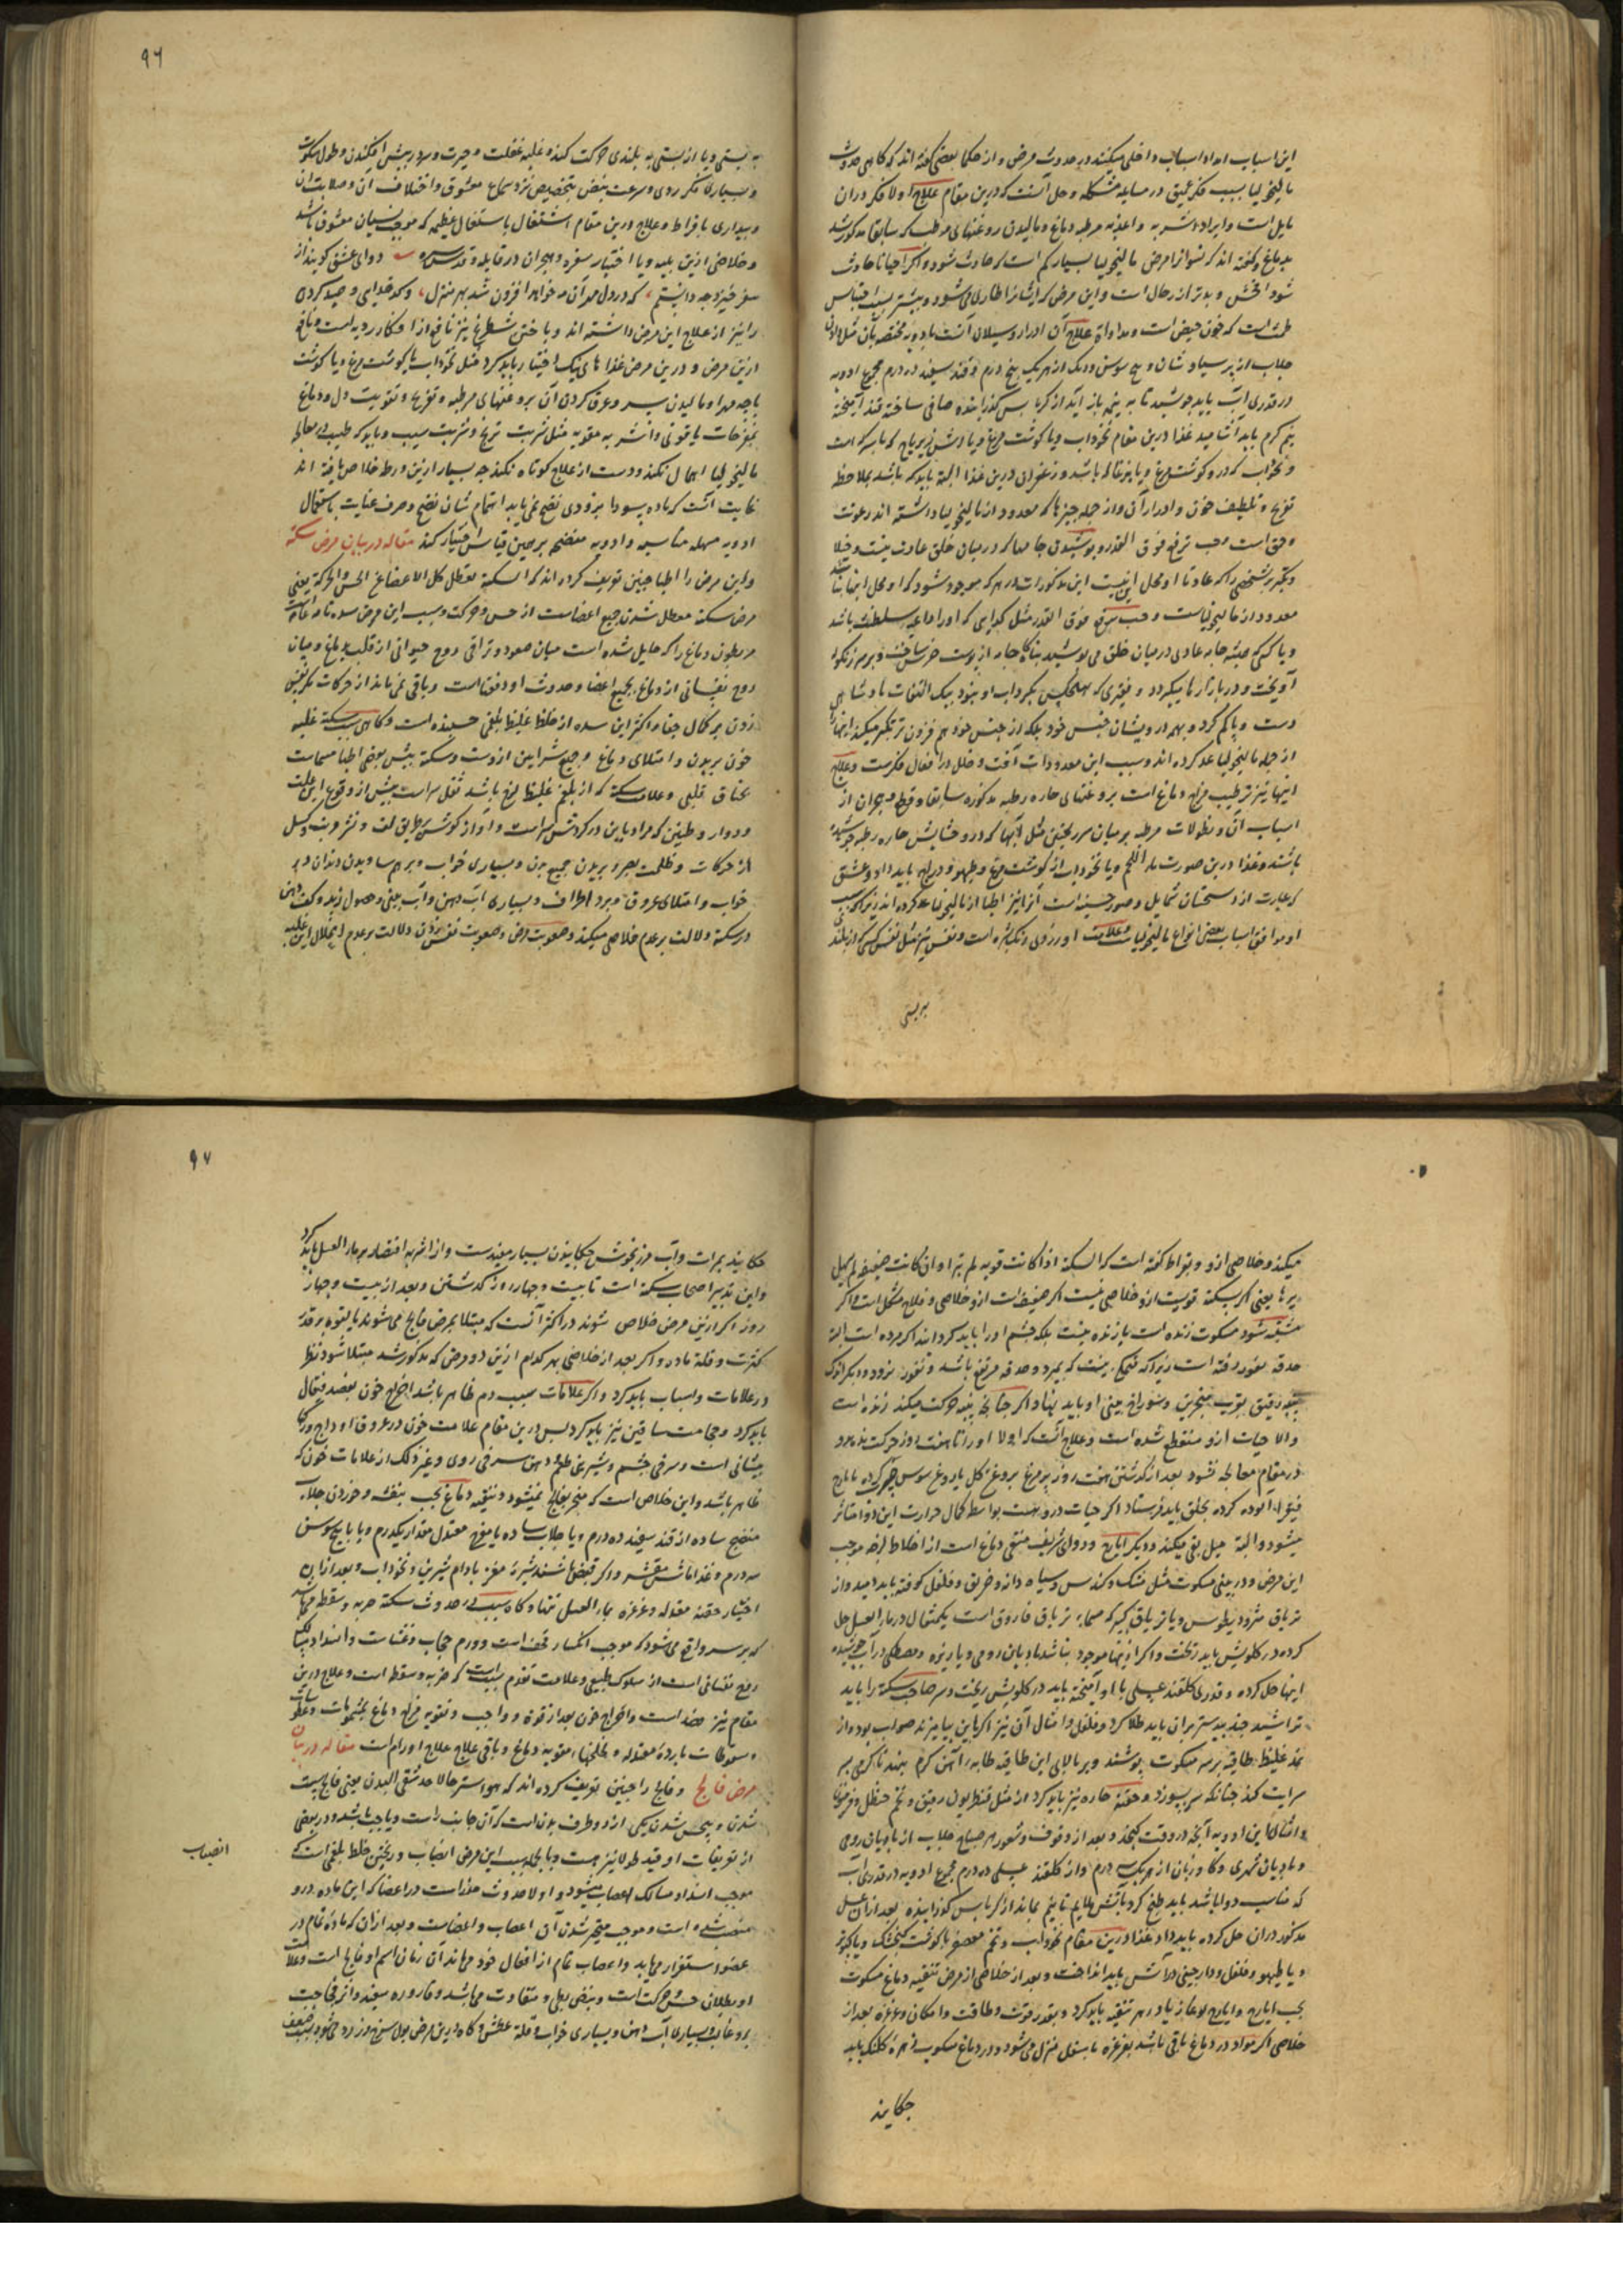 این اسباب امداد اسباب داخلی میکنند در حدوث مرض و از حکما بعضی گفته اند که گاهی حدوث
مالیخولیا بسبب فکر عمیق در مسایل مشکله و حل آنست که درین مقام علاج اولا فکر دران
مایل است و ایراد اشربه و اغذیه مرطبه دماغ و مالیدن روغنهای مرطب که سابقا مذکور شد
بدماغ و گفته اند که نسوانرا مرض مالیخولیا بسیار کم است که حادث شود و اگر احیانا حادث
شود افحش و بدتر از رجال است و این مرض که ایشانرا طاری می شود و بیشتر بسبب احتباس
طمث است که خون حیض است و مداوات علاج آن ادرار و سیلان آنست بادویه مختصه بآن مثل
جلاب از پرسیاوشان و بیخ سوسن و رنگ از هر یک پنج درم و قند سفید ده درم مجموع ادویه
در قدری آب باید جوشید تا به نیمه باز آید از کرباس گذرانیده صافی ساخته قند آمیخته
نیم گرم باید آشامید غذا درین مقام نخوداب و یا گوشت مرغ و یا
و نخوداب که در و گوشت مرغ و یا بزغاله باشد و زعفران درین غذا البته باید که باشد بملاحظه
تفریح و تلطیف خون و ادرار آن و از جمله چیزها که معدود از مالیخولیا داشته اند رعونت
وحق است وحب ترفع فوق القدر و پوشیدن جامها که در میان خلق عادت نیست و خیلا
و تکبر بر شخصی را که عادتا او محل این نیست این مذکورات در هر که موجود شود که او محل اینها نباشد
معدود از مالیخولیاست و حب ترفع فوق القدر مثل گدایی که او را داعیه سلطنت باشد
و یا کسی که همیشه جامه عادی در میان خلق می پوشید بناگاه جامه از پوست خرس ساخت و بر سر زنگوله
آویخت و در بازارها میگردد و فقیری که بهیچکس نگرود
دست و پا گم کرد و بهم درویشان جنس خود بلکه از جنس خود هم فزون تر تکبر میکند اینها را
از جمله مالیخولیا عد کرده اند و سبب این معدودات آفت و خلل در افعال فکرست و علاج
اینها نیز ترطیب مزاج دماغ است بروغنهای حاره رطبه مذکوره سابقا و قطع و هجران از
اسباب آن و نطولات مرطبه بر میان سر ریختن مثل آبها که درو حشایش حاره رطبه جوشیده
باشند و غذا درین صورت ماء اللحم و یا نخوداب از گوشت مرغ و طیهو و دراج باید داد و عشق
که عبارت از دوستی شمایل و صور حسنه است آنرا نیز اطبا از مالیخولیا عد کرده اند زیرا که سبب
او موافق اسباب بعضی انواع مالیخولیاست و علامت او زردی رنگ است و نفس نیز مثل نفس کسی که از بلندی
به پستی
۹۶
به پستی و یا از پستی به بلندی حرکت کند و غلبه غفلت و حیرت و سر در پیش افکندن و طول سکوت
و بسیاری فکر روی و سرعت نبض بتخصیص نزد سماع معشوق و اختلاف آن و صلابت آن
و بیداری بافراط و علاج درین مقام اشتغال باشغال عظیمه که موجب نسیان معشوق باشد
و خلاصی ازین بلیه و یا اختیار سفره و هجران دوای عشق گویند از
سفر خیزد چه دانستم که در دل مهر آن مه خواهد افزون شد بهر منزل و کدخدایی و صید کردن
را نیز از علاج این مرض داشته اند و باختن شطرنج نیز نافع از افکار ردیه است و نافع
ازین مرض و درین مرض غذا های نیک اختیار باید کرد مثل نخوداب با گوشت مرغ و یا گوشت
بره و عرق کردن آن بروغنهای مرطبه و تفریح و تقویت دل و دماغ
بمفرحات یاقوتی و اشربه مقویه مثل شربت ترنج و شربت سیب و باید که طبیب در معالجه
مالیخولیا اهمال نکند و دست از علاج کوتاه نکند چه بسیار ازین ورطه خلاص یافته اند
غایت آنست که ماده سودا بزودی نضج نمی یابد اهتمام شان نضج و صرف عنایت باستعمال
ادویه مسهله مناسبه و ادویه منضجه برهمین قیاس اختیار کنند مقاله در بیان مرض سکته
و این مرض را اطبا چنین تعریف کرده اند که السکتة تعطل کل الاعضاء عن الحس والحرکة یعنی
مرض سکته معطل شدن جمیع اعضاست از حس و حرکت و سبب این مرض سده تامه است
در بطون دماغ را که حایل شده است میان صعود و ترقی روح حیوانی از قلب بدماغ و میان
روح نفسانی از دماغ بجمیع اعضا و حدوث او دفعتا است و باقی نمی ماند از حرکات مگر نفس
زدن بر کمال خفا و اکثر این سده از خلط غلیظ بلغمی چسبنده است و گاهی بسبب سکته غلبه
خون بر بدن و امتلای دماغ و جمیع شرایین ازوست و سکته پیش بعضی اطبا مسماست
بخناق قلبی و علامت سکته که از بلغم غلیظ لزج باشد ثقل سر است پیش از وقوع این علت
و دوار و طنین که مراد باین در گردش سر است و آواز گوش بطریق لف و نشر مرتب و کسل
از حرکات و ظلمت بصر و پریدن جمیع بدن و بسیاری خواب و برهم ساویدن دندان در
خواب و امتلای عروق و برد اطراف و بسیاری آب دهن و آب بینی و حصول زبد و کف دهن
در سکته دلالت بر عدم خلاصی میکند و صعوبت مرض و صعوبت نفس زدن دلالت بر عدم انحلال این علت
میکند و خلاصی ازو و بقراط گفته است که السکتة اذا کانت قویة لم یبرأ وان کانت ضعیفة لم یسهل
برؤها یعنی اگر سکته قویست ازو خلاصی نیست اگر ضعیف است ازو خلاصی و فلاح مشکل است و اگر
مشتبه شود مسکوت زنده است یا زنده نیست پلکه چشم او را باید گردانید اگر مرده است البته
حدقه بغور رفته است زیرا که هیچکس نیست که بمیرد و حدقه مرتفع باشد و بغور نرود و دیگر آنکه
پنبه رقیق بقرب منخرین و سوراخ بینی او باید نهاد اگر چنانچه پنبه حرکت میکند زنده است
والا حیات ازو منقطع شده است و علاج آنست که اولا او را تا هفت روز حرکت ندهد و
در مقام معالجه نشود بعد از گذشتن هفت روز پر مرغ بروغن گل یا روغن سوسن چرب کرده بایارج
فیقرا آلوده کرده بحلق باید فرستاد اگر حیات در وهست بواسطه کمال حرارت این دوا متاثر
میشود و البته میل بقی میکند و دیگر ایارج و دوای شریف منقی دماغ است از اخلاط لزجه موجب
این مرض و در بینی مسکوت مثل مشک و کندس و سیاه دانه و خربق و فلفل کوفته باید دمید و از
تریاق مثرودیطوس و یا تریاق کبیر که مسما به تریاق فاروق است یکمثقال در ماء العسل حل
کرده در گلویش باید ریخت و اگر اینها موجود نباشد بادیان رومی و یا زیره و مصطکی در آب جوشیده
اینها حل کرده و قدری گلقند عسلی با او آمیخته باید در گلویش ریخت و سر صاحب سکته را باید
تراشید جند بیدستر بران باید طلا کرد و فلفل و امثال آن نیز اگر باین بیامیزند صواب بود و از
نمد غلیظ طاقیه بر سر مسکوت پوشند و بر بالای این طاقیه طابه آهن گرم نهند تا گرمی بسر
سرایت کند چنانکه سر بسوزد و حقنه حاره نیز باید کرد از مثل قنطوریون رقیق و تخم حنظل و فرفیون
و امثال این ادویه آنچه در وقت گنجد و بعد از وقوف و شعور هر صباح جلاب از بادیان رومی
و بادیان شهری و گاوزبان از هر یک درم و از گلقند عسلی ده درم مجموع ادویه در قدری آب
که مناسب دوا باشد باید طبخ کرد بآتش ملایم تا نیم بماند از کرباس گذرانیده بعد از آن عسل
مذکور دران حل کرده باید داد غذا درین مقام نخوداب و تخم معصفر با گوشت گنجشک و یا کبوتر
و یا طیهو و فلفل و دارچینی در آش باید انداخت و بعد از خلاصی از مرض تنقیه دماغ مسکوت
بحب ایارج و ایارج لوغاذیا در هر تنقیه باید کرد و بقدر قوت و طاقت و امکان و غرغره بعد از
خلاصی اگر مواد در دماغ باقی باشد بغرغره باسفل منزل می شود و در دماغ مسکوب زهره کلنگ باید
چکانید
۹۷
چکانید بمرات و آب مرزنجوش چکانیدن بسیار مفیدست و از اشربه اقتصار بر ماء العسل باید کرد
و این تدبیر اصحاب سکته است تا بیست و چهار روز گذشتن و بعد از بیست و چهار
روز اگر ازین مرض خلاص شوند در اکثر آنست که مبتلا بمرض فالج می شوند یا لقوه بر قدر
کثرت و قلة ماده و اگر بعد از خلاصی بهر کدام ازین دو مرض که مذکور شد مبتلا شود نظر
در علامات و اسباب باید کرد و اگر علامات بسبب دم ظاهر باشد اخراج خون بفصد قیفال
باید کرد و حجامت ساقین نیز باید کرد پس درین مقام علامت خون در عروق اوداج و رگ
پیشانی است و سرخی چشم و شیرینی طعم دهن سرخی روی و غیر ذلک از علامات خون که
ظاهر باشد و این خلاص است که منجر بفالج نمیشود و تنقیه دماغ بحب بنفشه و خوردن جلاب
منضج ساده از قند سفید ده درم و یا جلاب ساده یا مفرح معتدل مقدار یکدرم و یا با بیخ سوسن
سه درم و غذا ماش مقشر و اگر قبض باشد شیره مغز بادام شیرین و نخوداب و بعد ازان
اختیار حقنه معتدله و غرغره بماء العسل تنها و گاه سبب حدوث سکته ضربه و سقطه می باشد
که بر سر واقع می شود که موجب انکسار قحف است و ورم حجاب و غثیات و انسداد مسالک
روح نفسانی است از سلوک طبیعی و علامت تقدم سبب است که ضربه و سقطه است و علاج درین
مقام نیز فصد است و اخراج خون بعد از قوة و واجب و تقویه مزاج دماغ بمشمومات و عطریات
و سعوطات بارده معتدله و طلاهای مقویه دماغ و باقی علاج علاج اورام است مقاله در بیان
مرض فالج و فالج را چنین تعریف کرده اند که هو استرخاء لاحد شقی البدن یعنی فالج سست
شدن و بیحس شدن یکی از دو طرف بدن است که آن جانب راست و یا چپ باشد و در بعضی
از تعریفات او قید طولا نیز هست و بالجمله سبب این مرض انصباب و ریختن خلط بلغمی است که
موجب انسداد مسالک اعصاب میشود و اولا حدوث خدر است در اعضا که این ماده درو
منصب شده است و موجب متخیر شدن آن اعصاب و اعضاست و بعد ازان که ماده تمام در
عضو استقرار می یابد و اعصاب تمام از افعال خود می ماند آن زمان اسم او فالج است و علامت
او بطلان حس و حرکت است و نبض بطی و متفاوت می باشد و قاروره سفید و اثر فجاجت
برو غالب و بسیاری آب دهن و بسیاری خواب و قلة عطش و گاه درین مرض بول سرخ و زرد می شود بسبب ضعف
انصباب